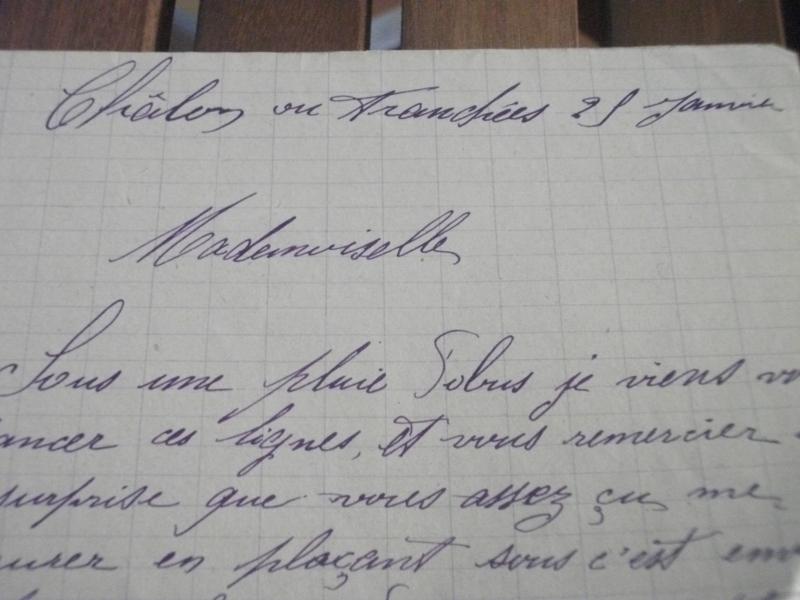 Châlon ou tranchées 25 Janvier
Mademoiselle
Sous une pluie d'obus je viens vo
ancer ces lignes, et vous remercier
surprise que vous assez çu me
urer en plaçant sous c'est env